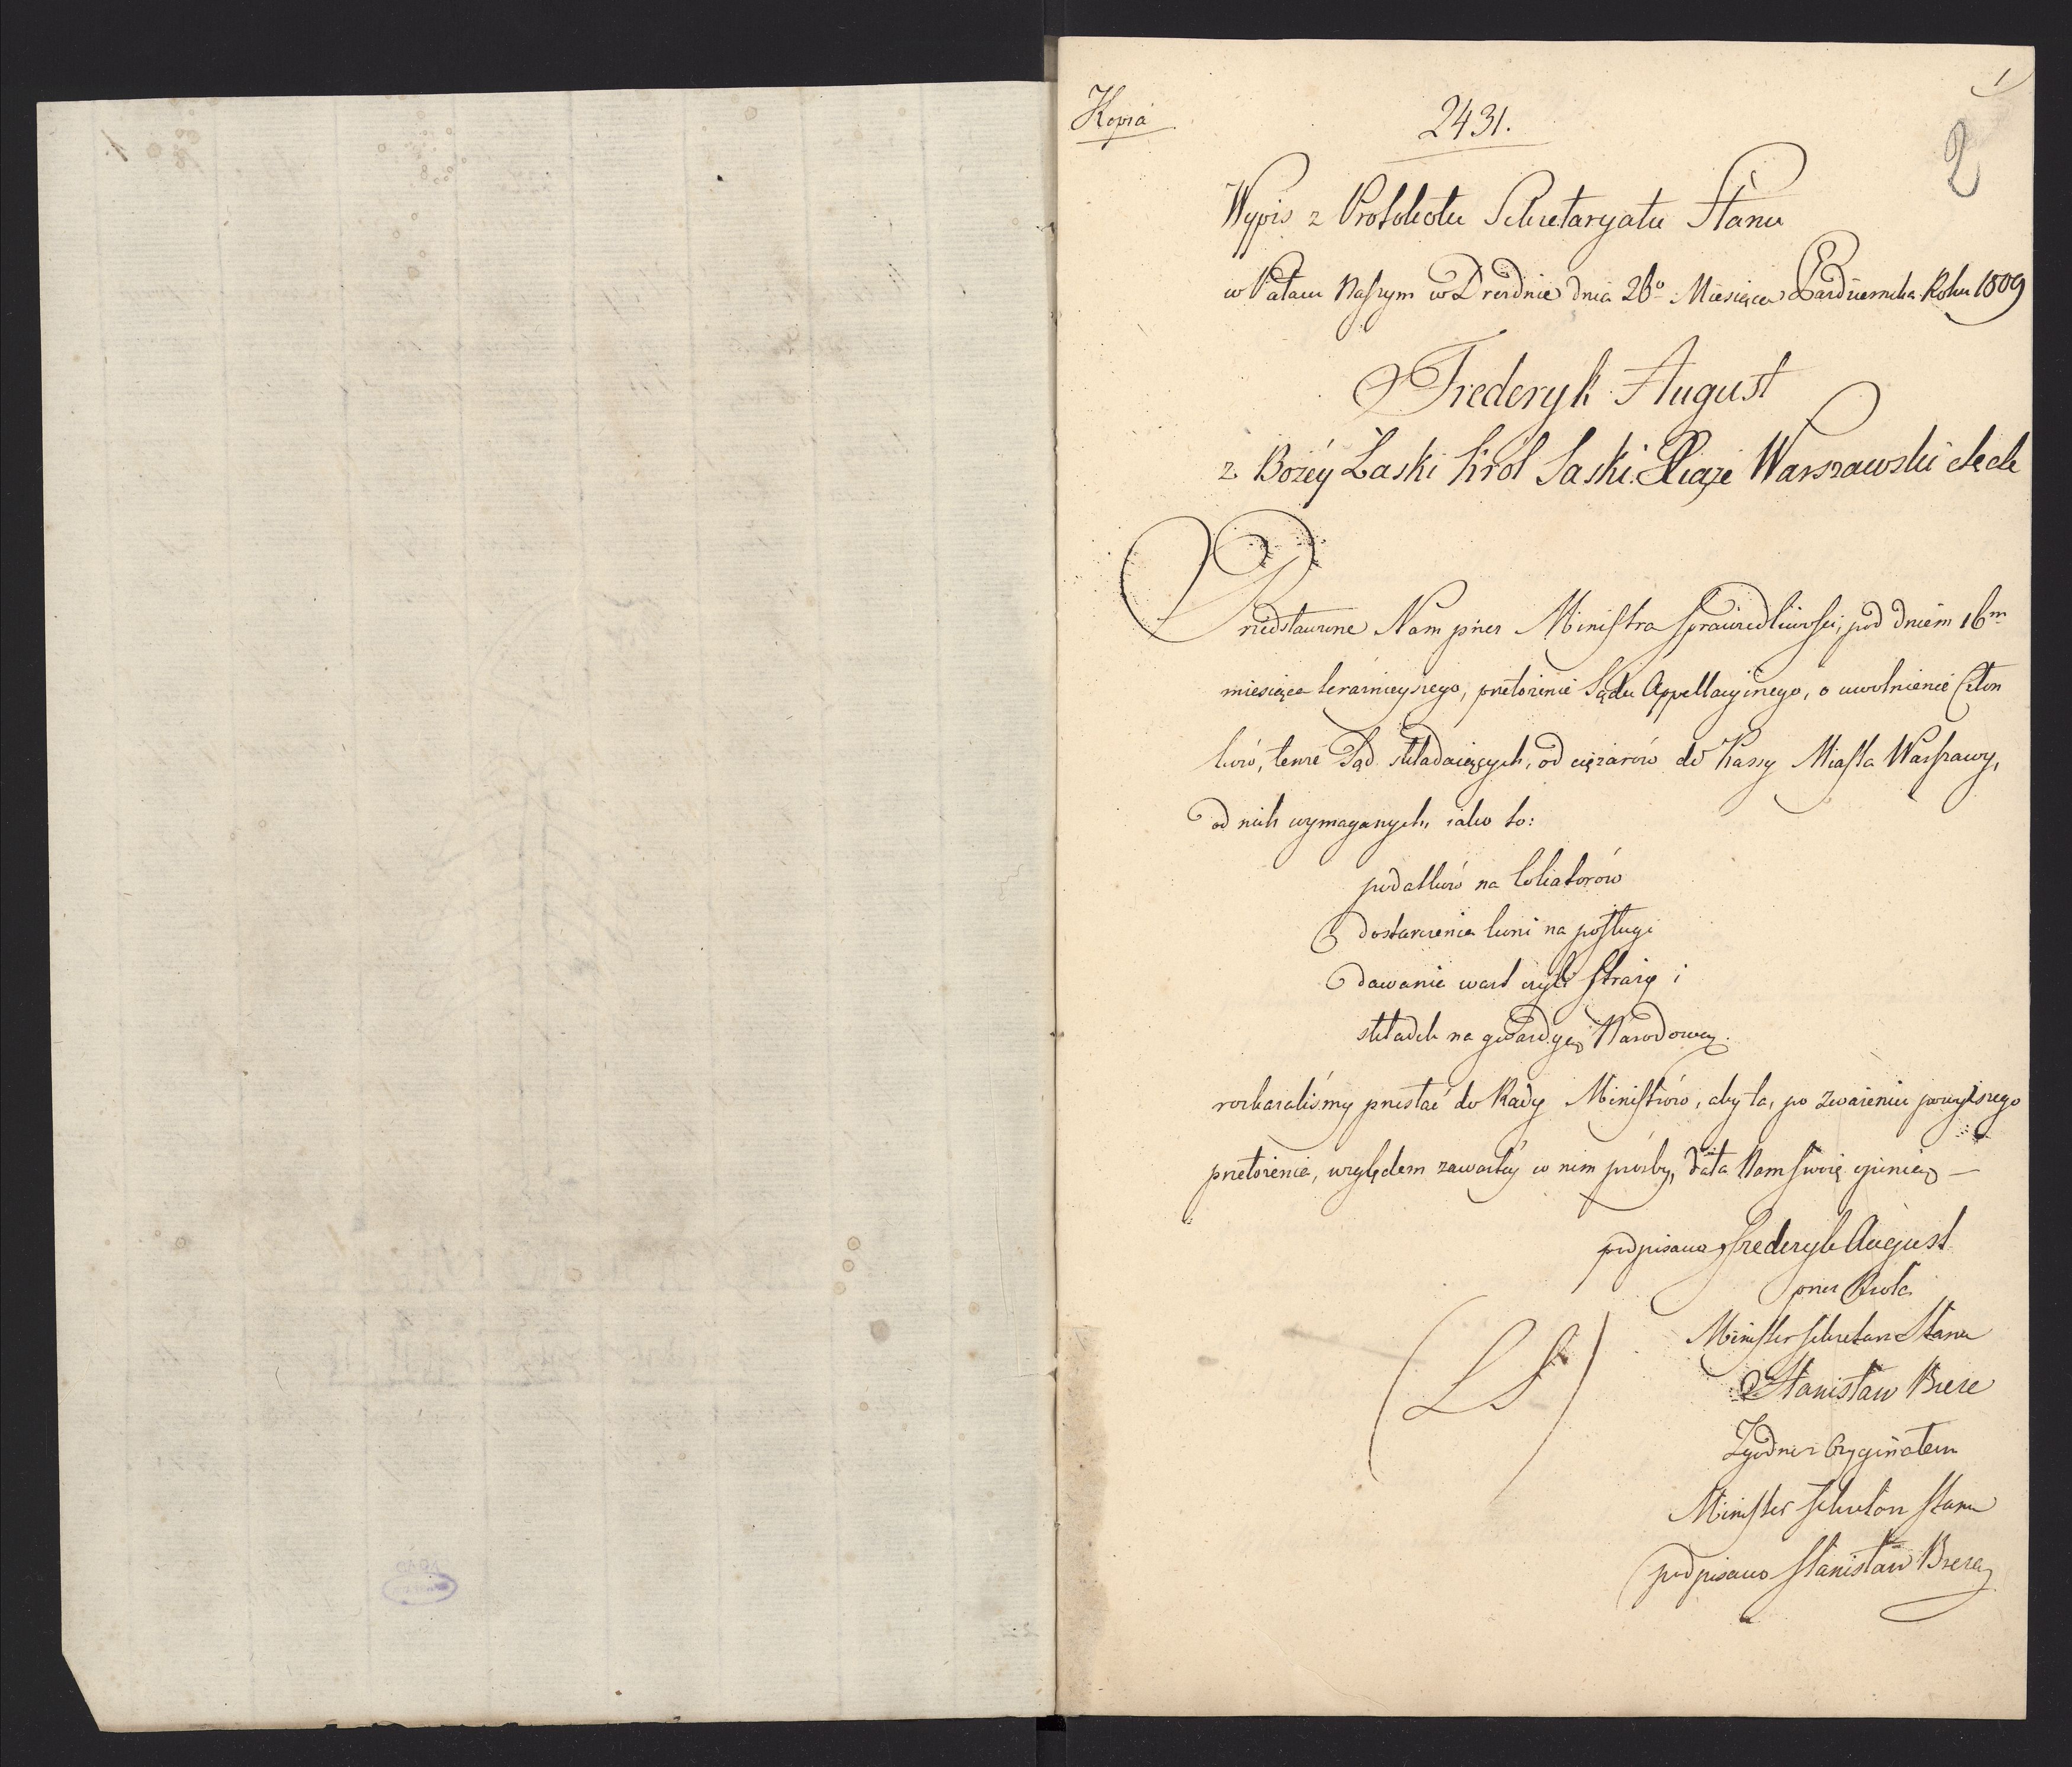 1
Kopia
2431.
2
Wypis z Protokołu Sekretaryatu Stanu
w Pałacu Naszym w Dreźdnie dnia 26º Miesiąca Października Roku 1809
Frederyk August
z Bożey Łaski Król Saski Xiąże Warszawski &c &c
Przedstawione Nam przez Ministra Sprawiedliwości, pod dniem 16m
miesiąca teraźnieyszego, przełożenie Sądu Appellacyinego, o uwolnienie Człon
ków, tenże Sąd składaiących, od ciężarów do Kassy Miasta Warszawy,
od nich wymaganych, iako to:
podatków na lokatorów
dostarczenia koni na posługi
dawania wart czyli straży i
składek na gwardyą Narodową.
rozkazaliśmy przesłać do Rady Ministrów, aby ta, po zważeniu powyższego
przełożenia, względem zawartey w nim prośby, dała Nam swoię opinią —
podpisano Frederyk August
przez Króla
Minister Sekretarz Stanu
(LS)
Stanisław Breza
Zgodno z Oryginałem
Minister Sekretarz Stanu
podpisano Stanisław Breza